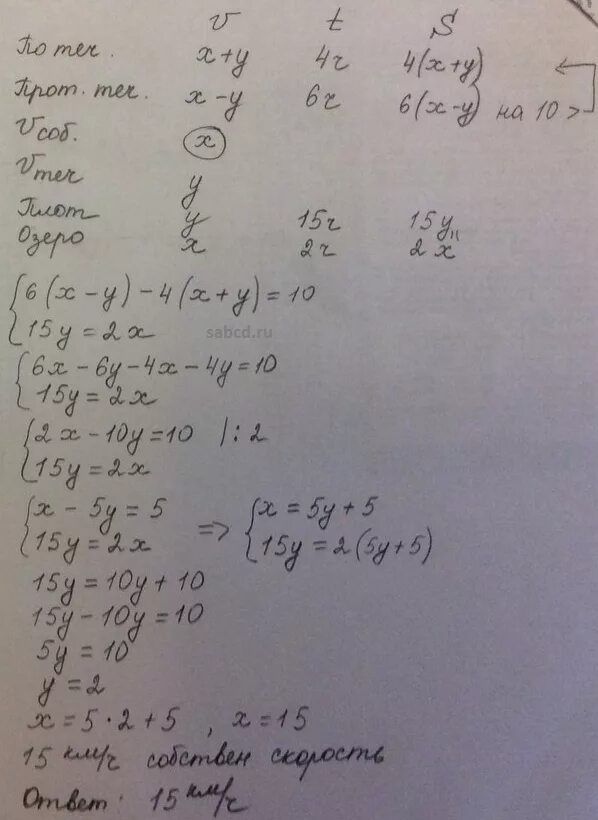 v t S
По теч. x+y 4ч 4(x+y)
Прот. теч. x-y 6ч 6(x-y) на 10 >
Vсоб. x
Vтеч y
Плот y 15ч 15y
Озеро x 2ч 2x
{6(x-y)-4(x+y)=10
{15y=2x
sabcd.ru
{6x-6y-4x-4y=10
{15y=2x
{2x-10y=10 |:2
{15y=2x
{x-5y=5 => {x=5y+5
{15y=2x {15y=2(5y+5)
15y=10y+10
15y-10y=10
5y=10
y=2
x=5·2+5, x=15
15 км/ч собствен скорость
Ответ: 15 км/ч